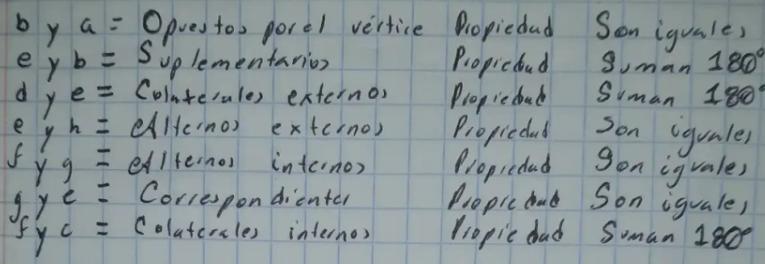 b y a = Opuestos por el vértice Propiedad Son iguales
e y b = Suplementarios Propiedad Suman 180°
d y e = Colaterales externos Propiedad Suman 180°
e y h = Alternos externos Propiedad Son iguales
f y g = Alternos internos Propiedad Son iguales
g y e = Correspondientes Propiedad Son iguales
f y c = Colaterales internos Propiedad Suman 180°